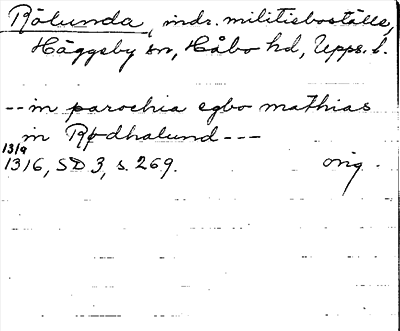 Rölunda, indr. militieboställe,
Häggeby sn, Håbo hd, Upps. l.
-- in parochia egbo mathias
in Rødhalund ---
13/9
1316, SD 3, s. 269. orig.